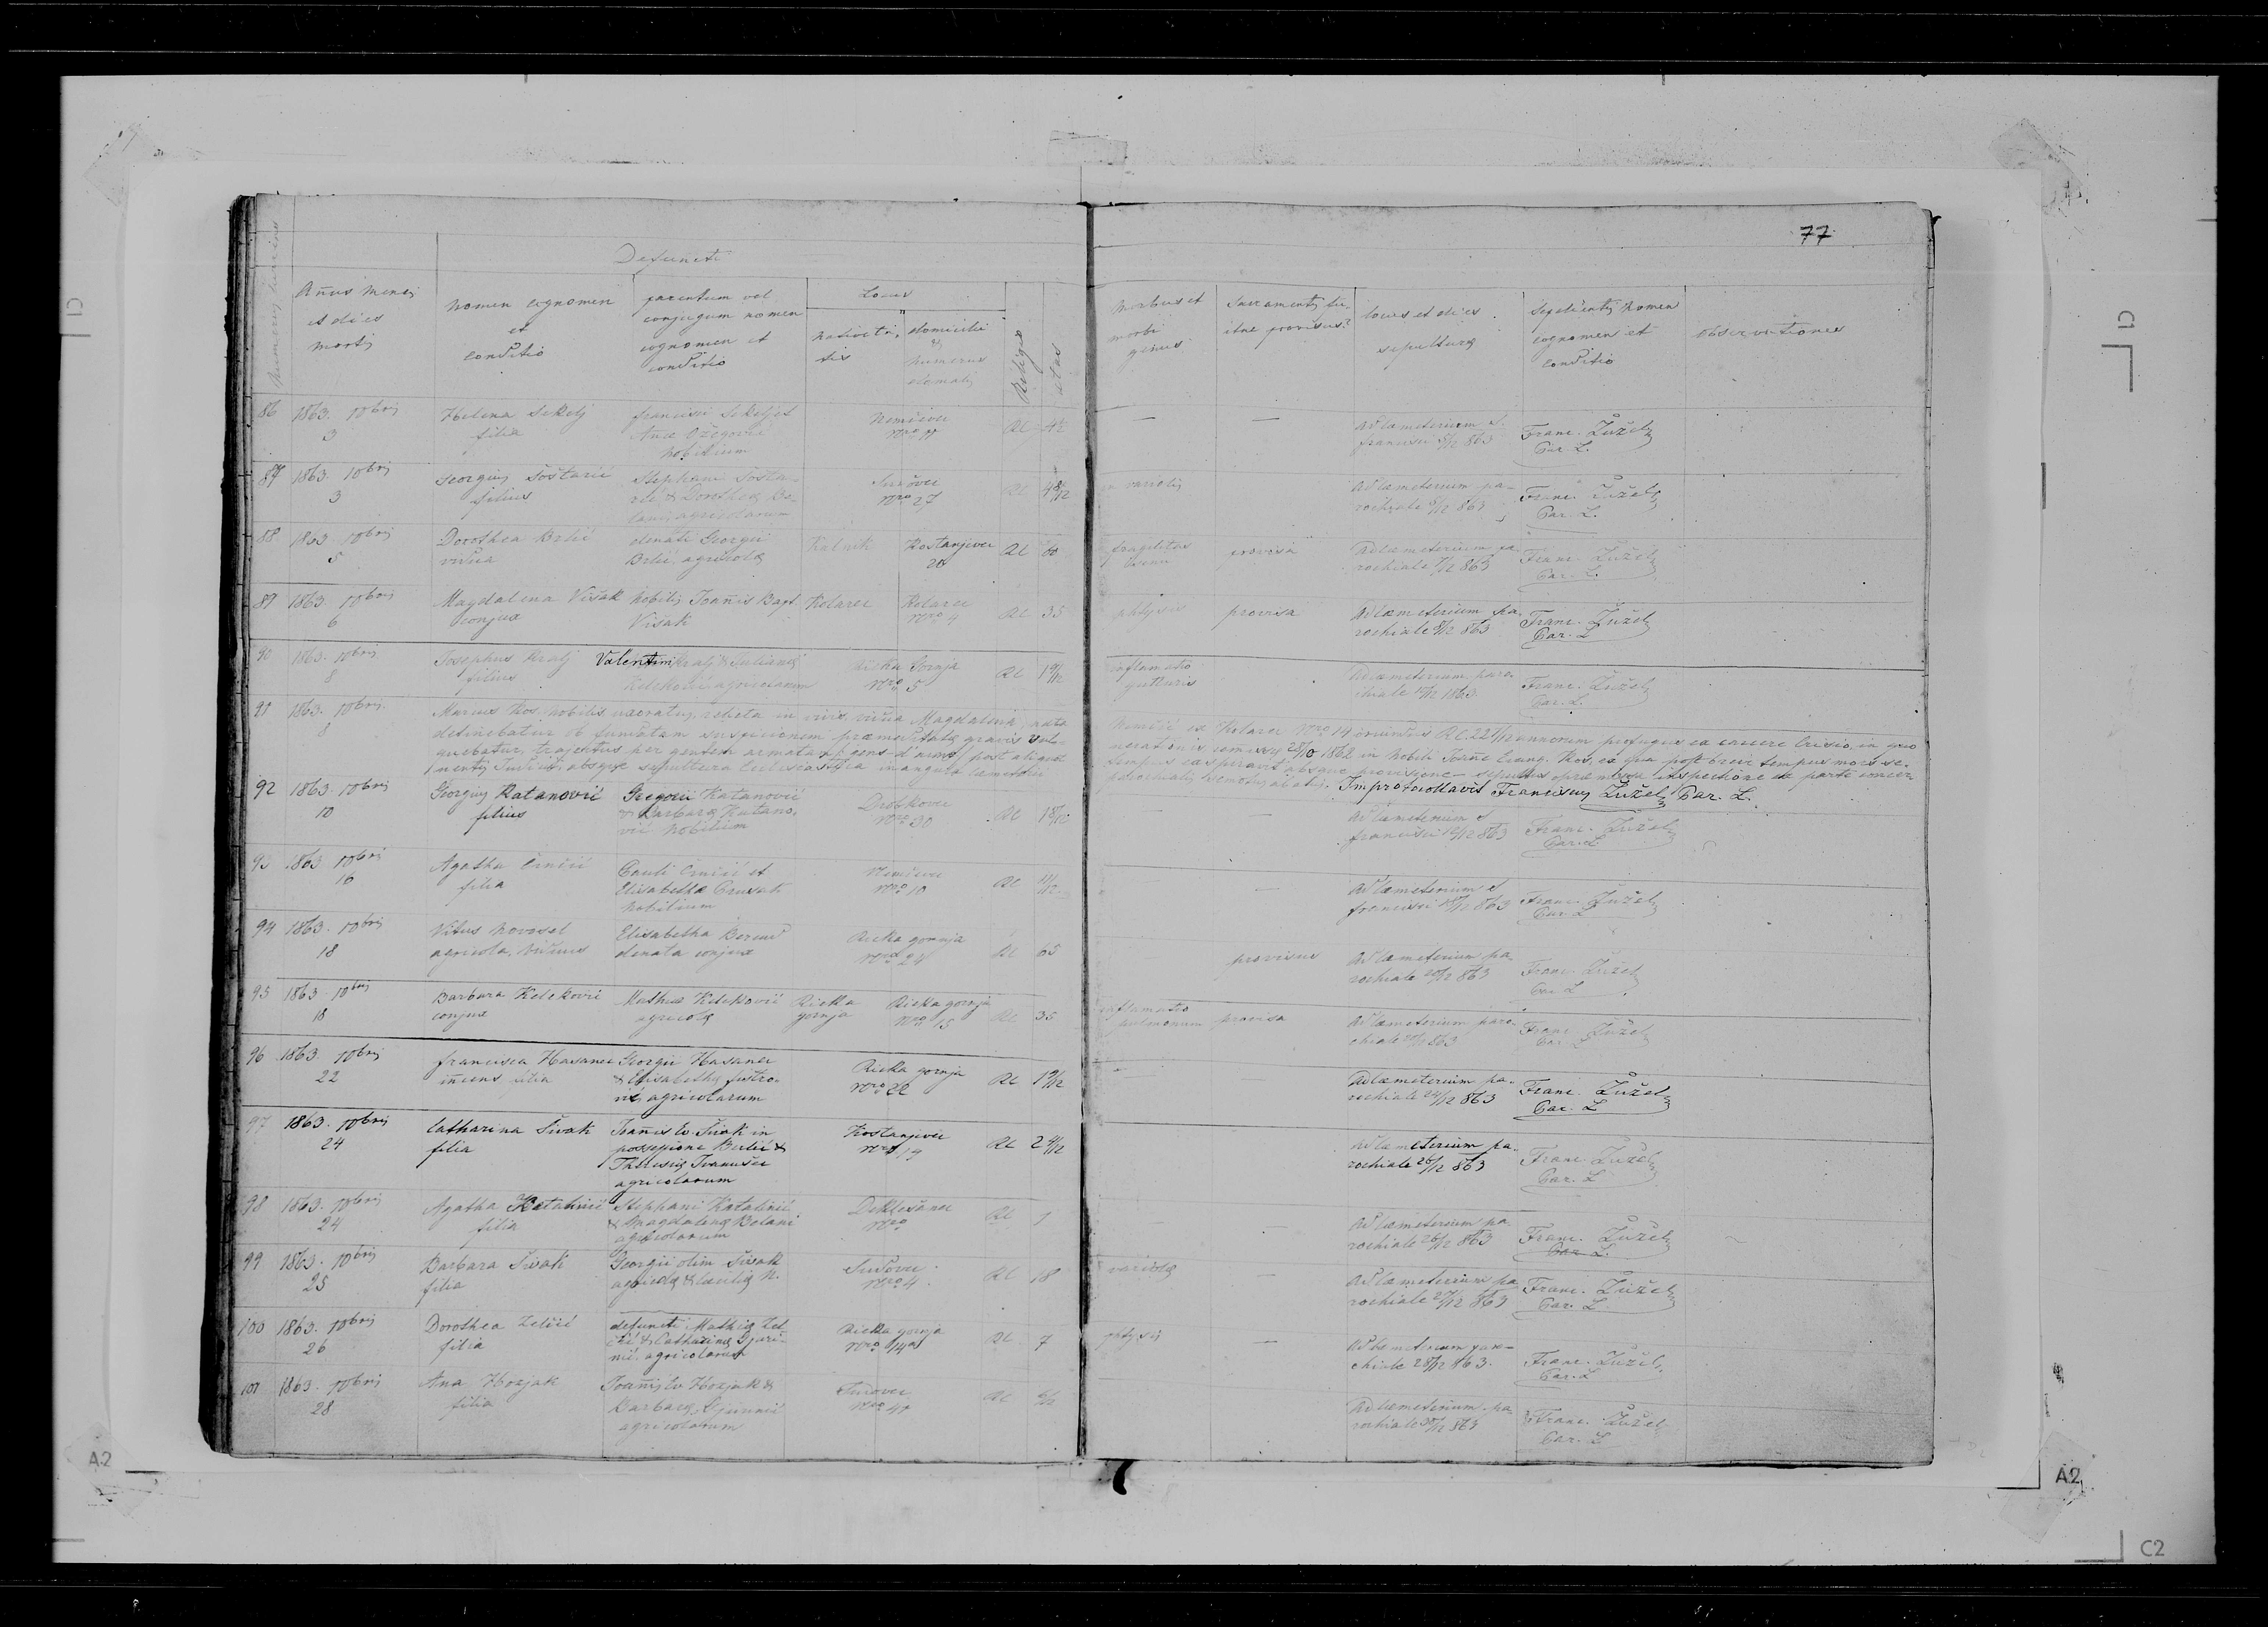 77
Defuncti
Numerus currens
Annus mensis et dies mortis
Nomen cognomen et conditio
parentum vel conjugum nomen cognomen et conditio
Locus
nativitatis
domicilii & numerus domalis
Religio
aetas
Morbus et morbi genus
Sacramentis fuitne provisus?
locus et dies sepulturæ
Sepelientis nomen cognomen et conditio
observationes
86 1863. 10bris
3
Helena Sekelj
filia
francisci Sekelj et
Anæ Ožegović
nobilium
Nemčevec
Nro 11
RC
—
—
Ad cæmeterium S.
francisci 5/12 863
Franc. Žužel
Par. L.
87 1863. 10bris
3
Georgius Šoštarić
filius
Stephani Šošta-
rić & Dorotheæ Bo-
lanić agricolarum
Sudovec
Nro 27
RC 4 8/12
variolis
Ad cæmeterium pa-
rochiale 5/12 863
Franc. Žužel
Par. L.
88 1863 10bris
5
Dorothea Brlić
vidua
denati Georgii
Brlić agricolæ
Kalnik
Kostanjevec
20
RC 60
fragilitas
senii
provisa
Ad cæmeterium pa-
rochiale 7/12 863
Franc. Žužel
Par. L.
89 1863 10bris
6
Magdalena Višak
conjux
Nobilis Joannis Bapt.
Višak
Kolarec
Kolarec
Nro 4
RC 35
phtysis
provisa
Ad cæmeterium pa-
rochiale 8/12 863
Franc. Žužel
Par. L
90 1863. 10bris
8
Josephus Kralj
filius
Valentini Kralj & Julianæ
Keleković agricolarum
Rieka Gornja
Nro 5
RC
inflamatio
gutturis
Ad cæmeterium paro-
chiale 1863.
Franc. Žužel
Par. L.
91 1863. 10bris.
8
Marcus Kos nobilis uxoratus, relicta in vivis vidua Magdalena nata
Nemčić ex Kolarec Nro 14 oriundus RC 22 annorum profugus ex carcere Crisio, in quo
detinebatur ob fundatam suspicionem præmeditatæ gravis vul-
nerationis commissæ 28/10 1862 in nobili Joanne Evang. Kos, ex qua post breve tempus mors se-
quebatur, trajectus per gentem armatam (gens d'arms) post aliquod
tempus exspiravit absque provisione — sepultus præmissa inspectione ex parte concer-
nentis Judicii, absque sepultura Ecclesiastica in angulo cæmeterii
parochialis remotus ab aliis. Improtocollavit Franciscus Žužel Par. L.
92 1863. 10bris
10
Georgius Katanović
filius
Gregorii Katanović
& Barbaræ Katano-
vić nobilium
Drobkovec
Nro 30
RC
—
—
Ad cæmeterium S
francisci 12/12 863
Franc. Žužel
Par. L
93 1863 10bris
16
Agatha Činčić
filia
Pauli Činčić et
Elisabethæ
nobilium
Nemčevec
Nro 10
RC 11/12
—
Ad cæmeterium S
francisci 18/12 863
Franc. Žužel
Par. L
94 1863. 10bris
18
Vitus Novosel
agricola, viduus
Elisabetha
denata conjux
Rieka gornja
Nro 24
RC 65
provisus
Ad cæmeterium pa-
rochiale 20/12 863
Franc. Žužel
Par. L
95 1863 10bris
18
Barbara Keleković
conjux
Mathiæ Keleković
agricolæ
Rieka
gornja
Rieka gornja
Nro 15
RC 35
inflamatio
pulmonum
provisa
Ad cæmeterium paro-
chiale 20/12 863
Franc. Žužel
Par. L
96 1863. 10bris
22
francisca Hasanec
innocens filia
Georgii Hasanec
& Elisabethæ
agricolarum
Rieka gornja
Nro 22
RC 1 9/12
Ad cæmeterium pa-
rochiale 24/12 863
Franc. Žužel
Par. L
97 1863. 10bris
24
Catharina Šivak
filia
Joannis Ev. Šivak in
possessione Brlić &
Theresiæ Ivanušec
agricolarum
Kostanjevec
Nro 19
RC
Ad cæmeterium pa-
rochiale 26/12 863
Franc. Žužel
Par. L
98 1863. 10bris
24
Agatha Katalinić
filia
Stephani Katalinić
& Magdalenæ Bolanić
agricolarum
Deklešanec
Nro
RC 1
—
Ad cæmeterium pa-
rochiale 26/12 863
Franc. Žužel
Par. L.
99 1863. 10bris
25
Barbara Šivak
filia
Georgii olim Šivak
agricolæ & Cæciliæ N.
Sudovec
Nro 4
RC 18
variolæ
—
Ad cæmeterium pa-
rochiale 27/12 863
Franc. Žužel
Par. L
100 1863. 10bris
26
Dorothea Zelčić
filia
defuncti Mathiæ Zel-
čić & Catharinæ
agricolarum
Rieka gornja
Nro 14
RC 7
phtysis
—
Ad cæmeterium paro-
chiale 28/12 863.
Franc. Žužel
Par. L
101 1863. 10bris
28
Ana Hozjak
filia
Joannis Ev. Hozjak &
Barbaræ
agricolarum
Sudovec
Nro 41
RC
Ad cæmeterium pa-
rochiale 30/12 863
Franc. Žužel
Par. L
A2
A2
C2